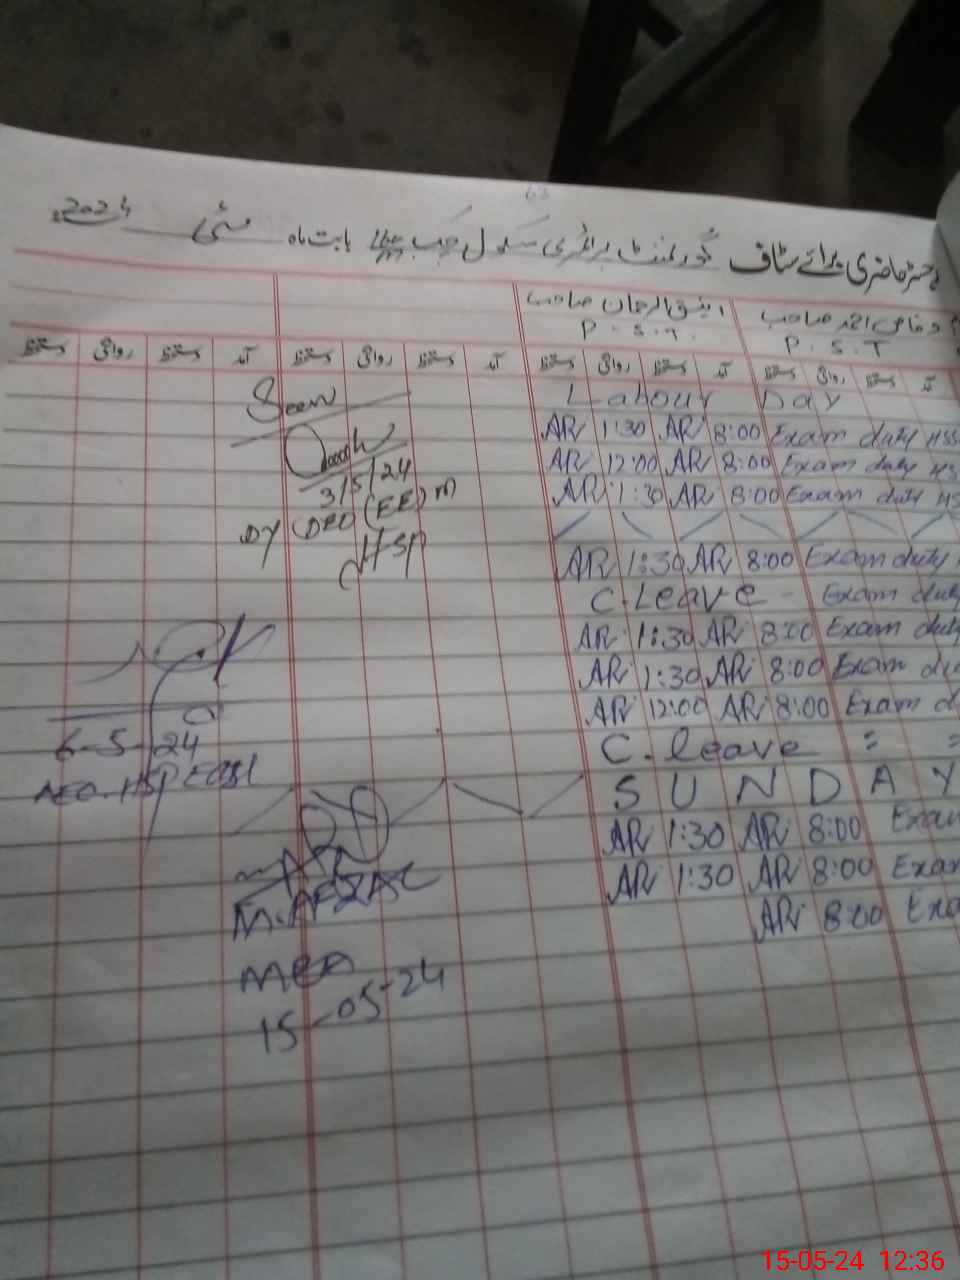 63
رجسٹر حاضری برائے سٹاف گورنمنٹ پرائمری سکول چک بابت ماہ مئی 2024
صاحب P.S.T
انیق الرحمان صاحب P.S.T.
آمد دستخط روانگی دستخط آمد دستخط روانگی دستخط آمد دستخط روانگی دستخط آمد دستخط روانگی دستخط
Labour Day
AR 1:30 AR 8:00 Exam duty
AR 12:00 AR 8:00 Exam duty
AR 1:30 AR 8:00 Exam duty
AR 1:30 AR 8:00 Exam duty
C.Leave - Exam duty
AR 1:30 AR 8:00 Exam duty
AR 1:30 AR 8:00 Exam du
AR 12:00 AR 8:00 Exam d
C.leave = =
SUNDAY
AR 1:30 AR 8:00 Exam
AR 1:30 AR 8:00 Exam
AR 8:00 Exa
Seen
3/5/24
DY (DEO (EE) M
HSP
6-5-24
AEO. HSP East
M.AFZAL
MEA
15-05-24
15-05-24 12:36